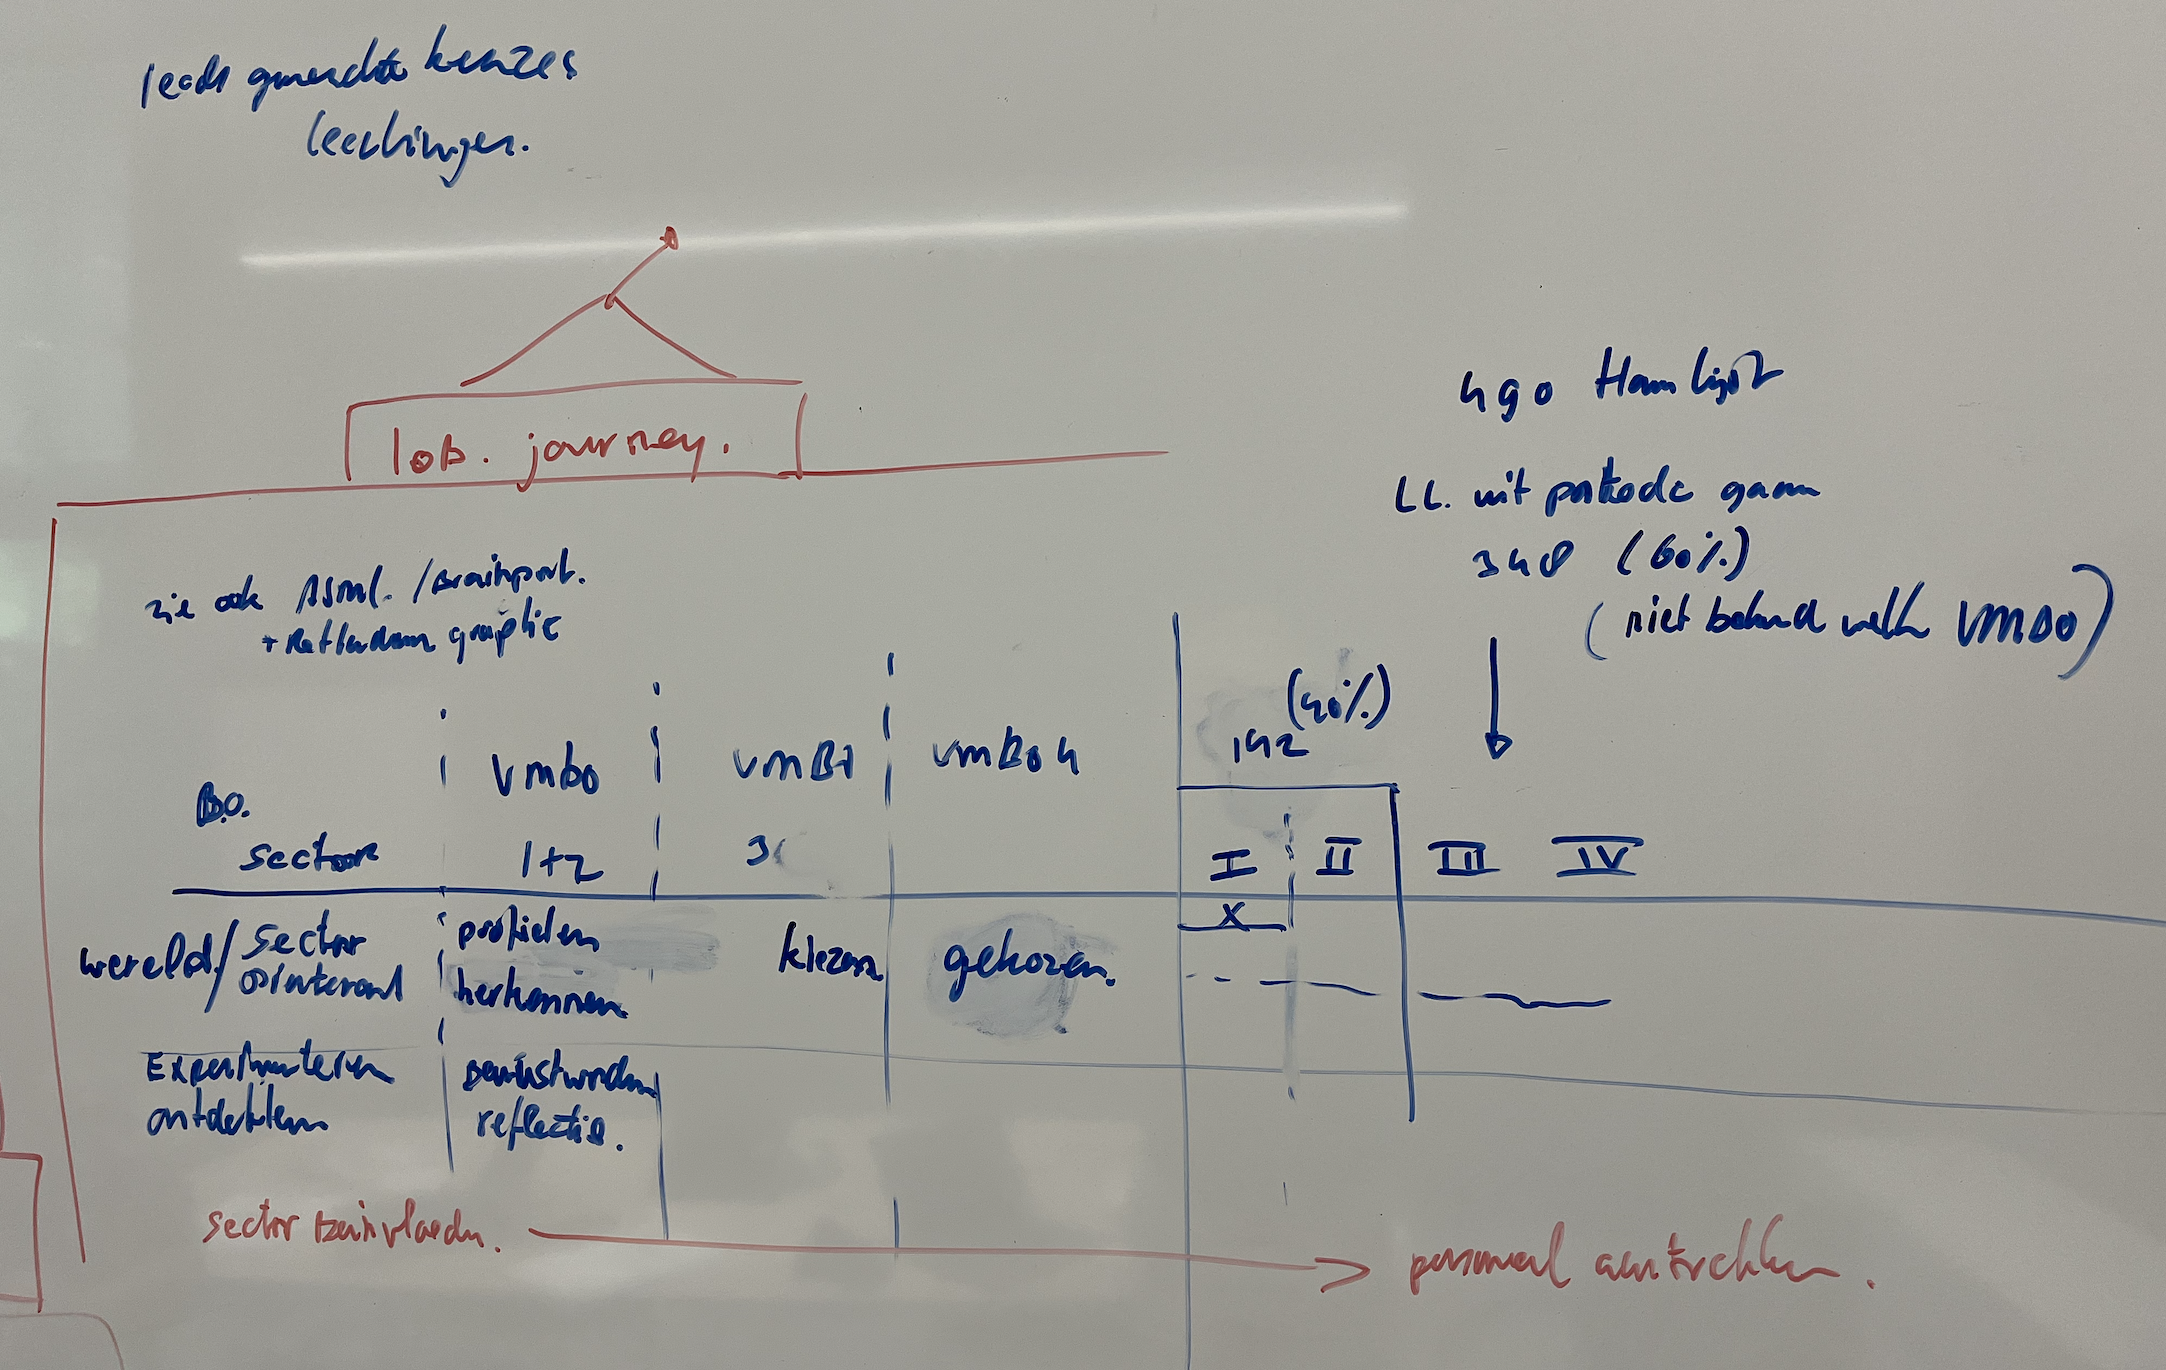 keuzes
leerlingen.
lob. journey.
zie ook ASML. / Brainport.
+ Rotterdam graphic
490
LL. uit postcode gaan
348 (60%)
(niet bekend welk VMBO)
(40%)
142
B.O.
sector
vmbo
1+2
VMBO
3
VMBO 4
I
II
III
IV
X
wereld / sector
profielen
herkennen
kiezen
gekozen.
Experimenteren
ontdekken
Bewustworden
reflectie.
sector beinvloeden.
personeel aantrekken.